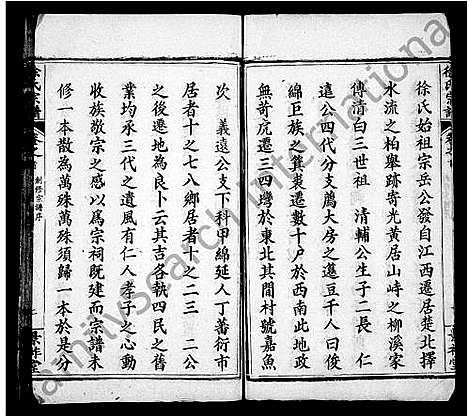 徐氏始祖宗岳公發自江西遷居楚北擇
水流之柏舉跡寄光黃居山峙之柳溪家
傳清白三世祖 清輔公生子二長 仁
遠公四代分支薦大房之邊豆千人曰俊
綿臣族之簑裘遷數十戶於西南此地政
無苛虎遷三四灣於東北其間村號嘉魚
次 義遠公支下科甲綿延人丁蕃衍市
居者十之七八鄉居者十之二三 二公
之後遷地為良卜云其吉各執四民之舊
業均承三代之遺風有仁人孝子之心動
收族敬宗之感以為宗祠既建而宗譜未
修一本散為萬殊萬殊須歸一本於是分
徐氏宗譜
卷之首
創修宗譜序
familysearch international